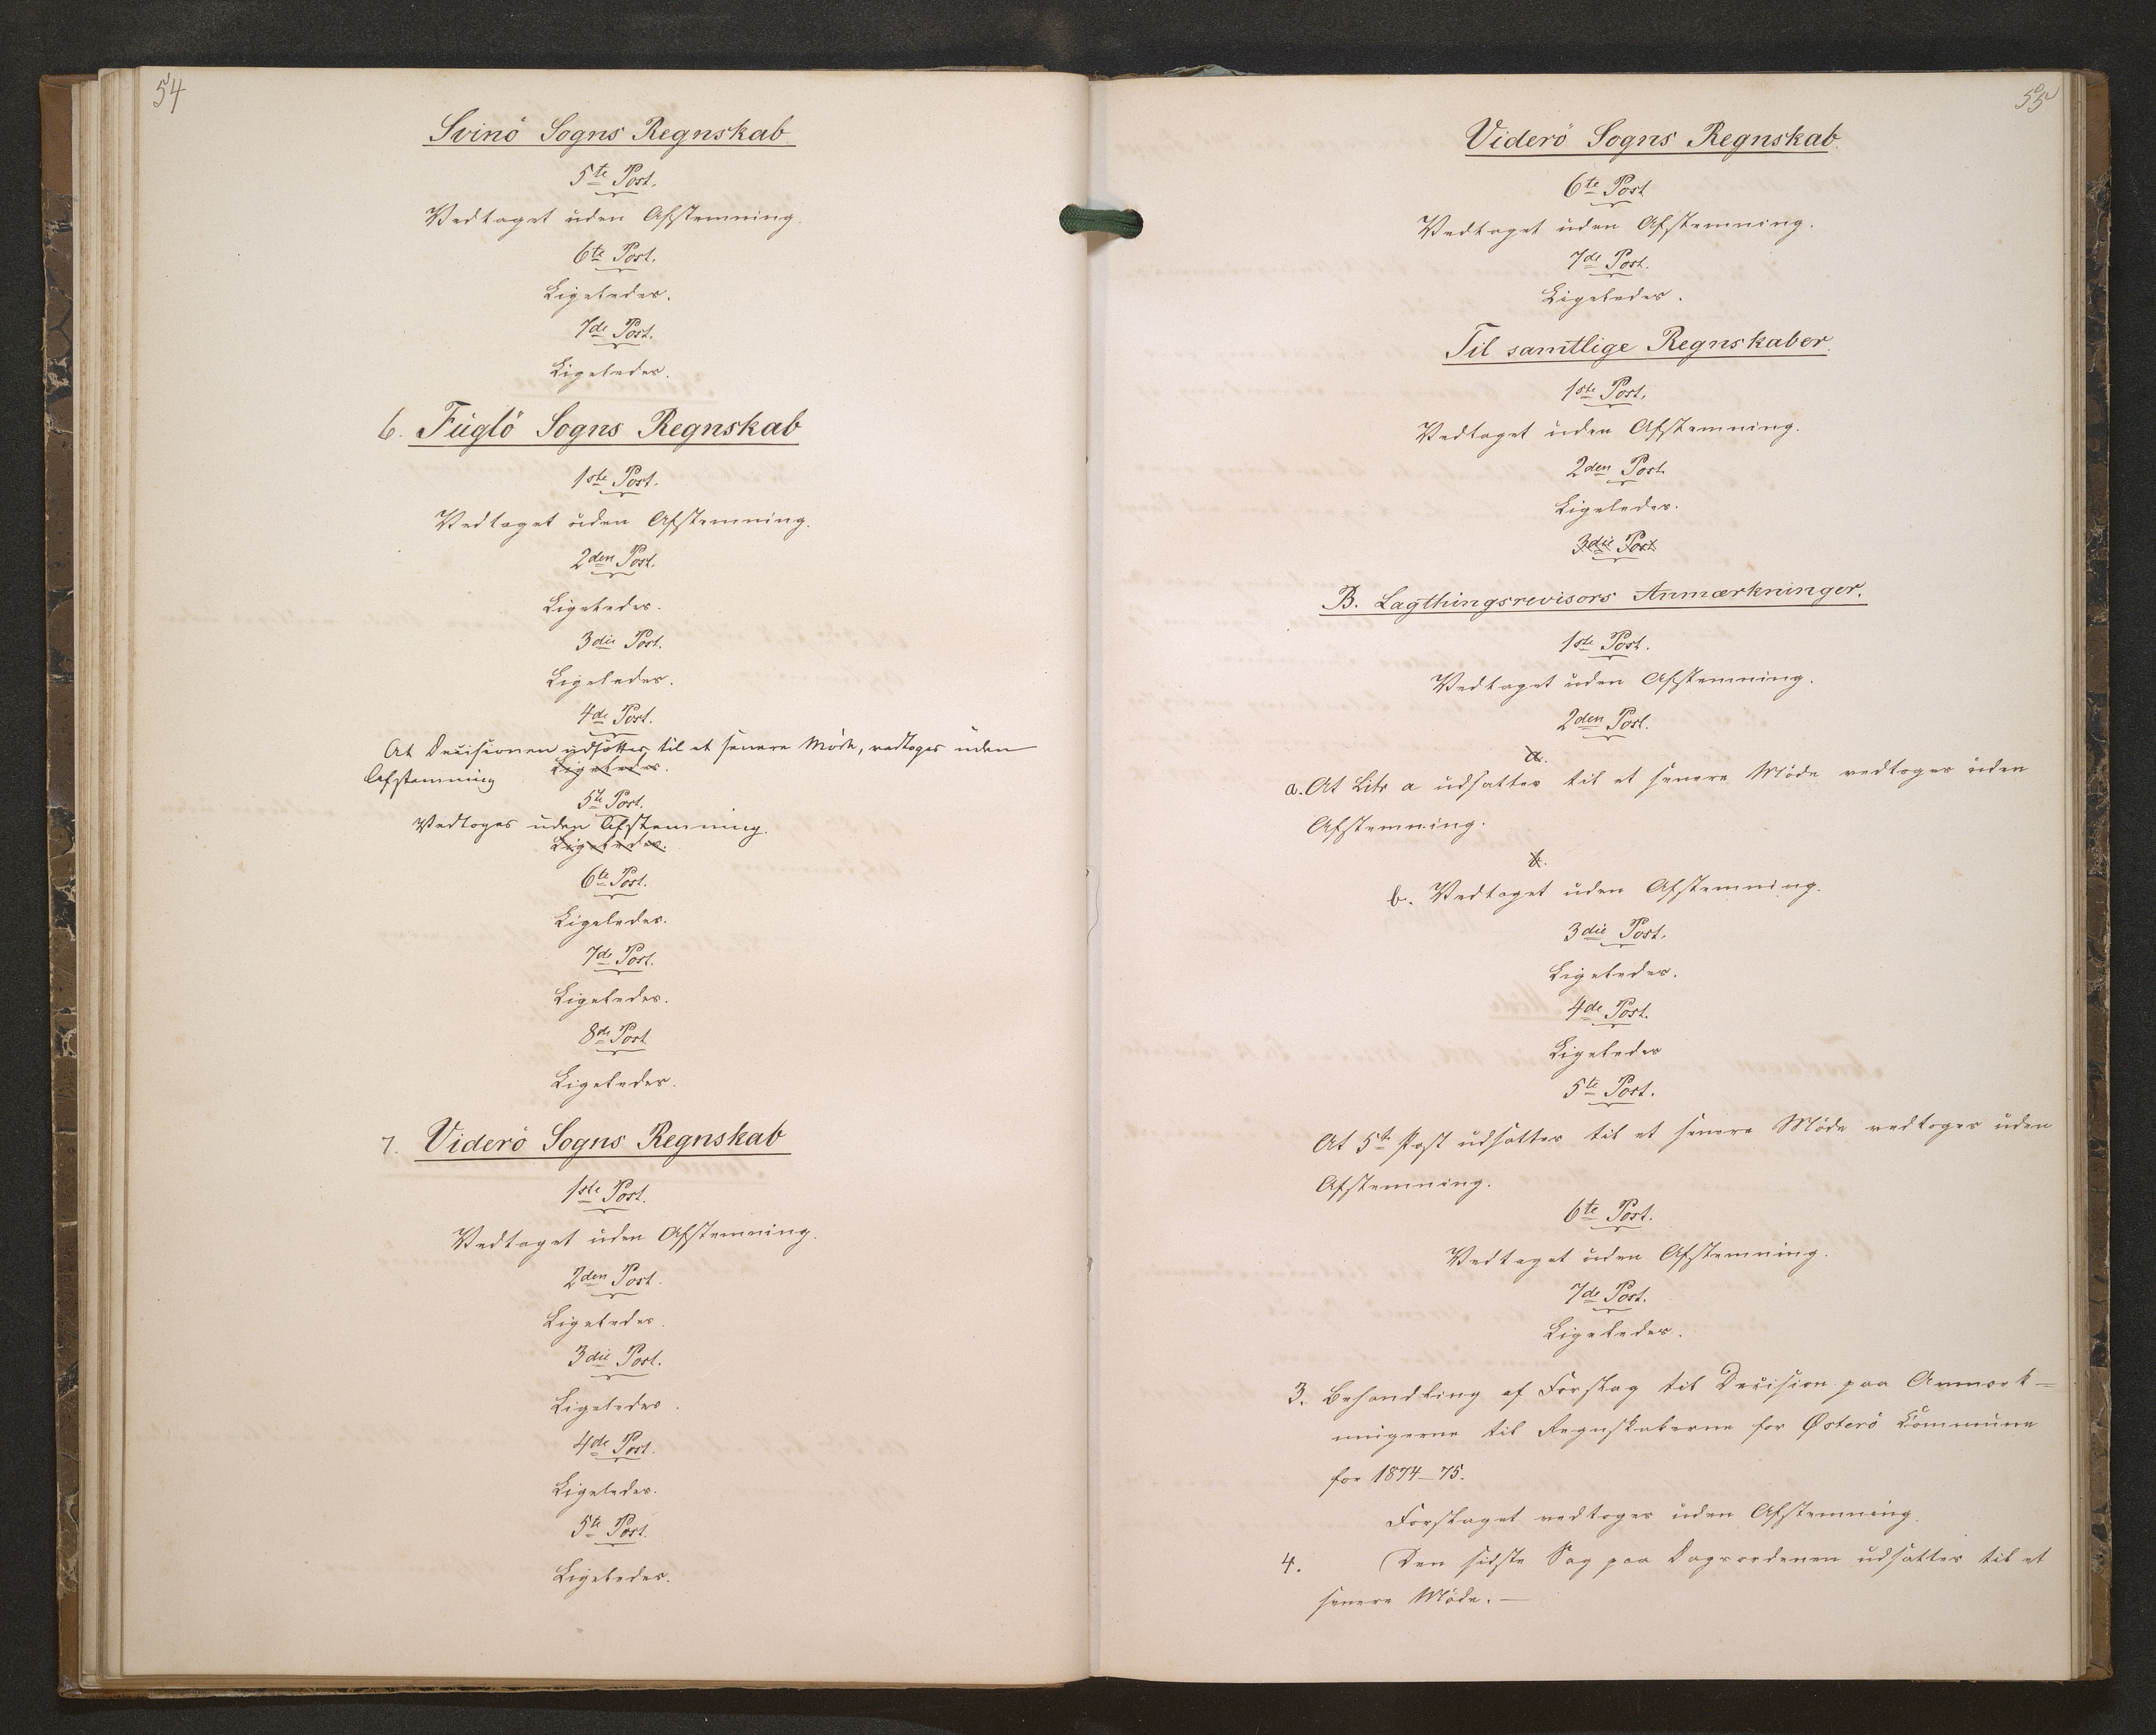 54
Svinö Sogns Regnskab.
5te Post.
Vedtaget uden Afstemning.
6te Post.
Ligeledes.
7de Post.
Ligeledes.
6. Fuglö Sogns Regnskab
1ste Post.
Vedtaget uden Afstemning.
2den Post.
Ligeledes.
3die Post.
Ligeledes.
4de Post.
At Decisionen udsættes til et senere Møde, vedtoges uden
Afstemning Ligeledes.
5te Post.
Vedtoges uden Afstemning.
Ligeledes.
6te Post.
Ligeledes.
7de Post.
Ligeledes.
8de Post
Ligeledes.
7. Viderö Sogns Regnskab
1ste Post.
Vedtaget uden Afstemning.
2den Post.
Ligeledes.
3die Post.
Ligeledes.
4de Post.
Ligeledes.
5te Post.
Ligeledes.
55
Viderö Sogns Regnskab.
6te Post
Vedtaget uden Afstemning.
7de Post.
Ligeledes.
Til samtlige Regnskaber.
1ste Post.
Vedtaget uden Afstemning.
2den Post.
Ligeledes.
3die Post
B. Lagthingsrevisors Anmærkninger.
1ste Post.
Vedtaget uden Afstemning.
2den Post.
a.
a. At Litr a udsættes til et senere Möde vedtoges uden
Afstemning.
b.
b. Vedtaget uden Afstemning.
3die Post.
Ligeledes.
4de Post.
Ligeledes
5te Post.
At 5te Post udsættes til et senere Möde vedtoges uden
Afstemning.
6te Post.
Vedtaget uden Afstemning.
7de Post.
Ligeledes.
3. Behandling af Forslag til Decision paa Anmærk-
ningerne til Regnskaberne for Østerö Kommune
for 1874-75.
Forslaget vedtoges uden Afstemning.
4. Den sidste Sag paa Dagsordenen udsættes til et
senere Möde. —